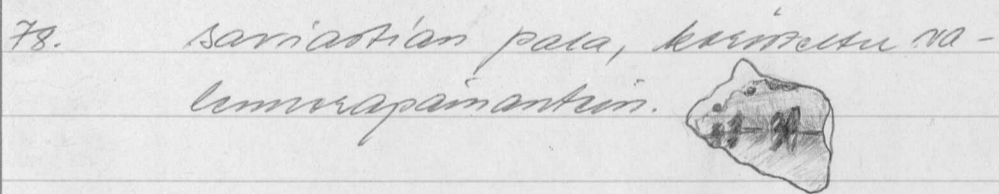 78. saviastian pala, koristeltu va-
lenuorapainantein.